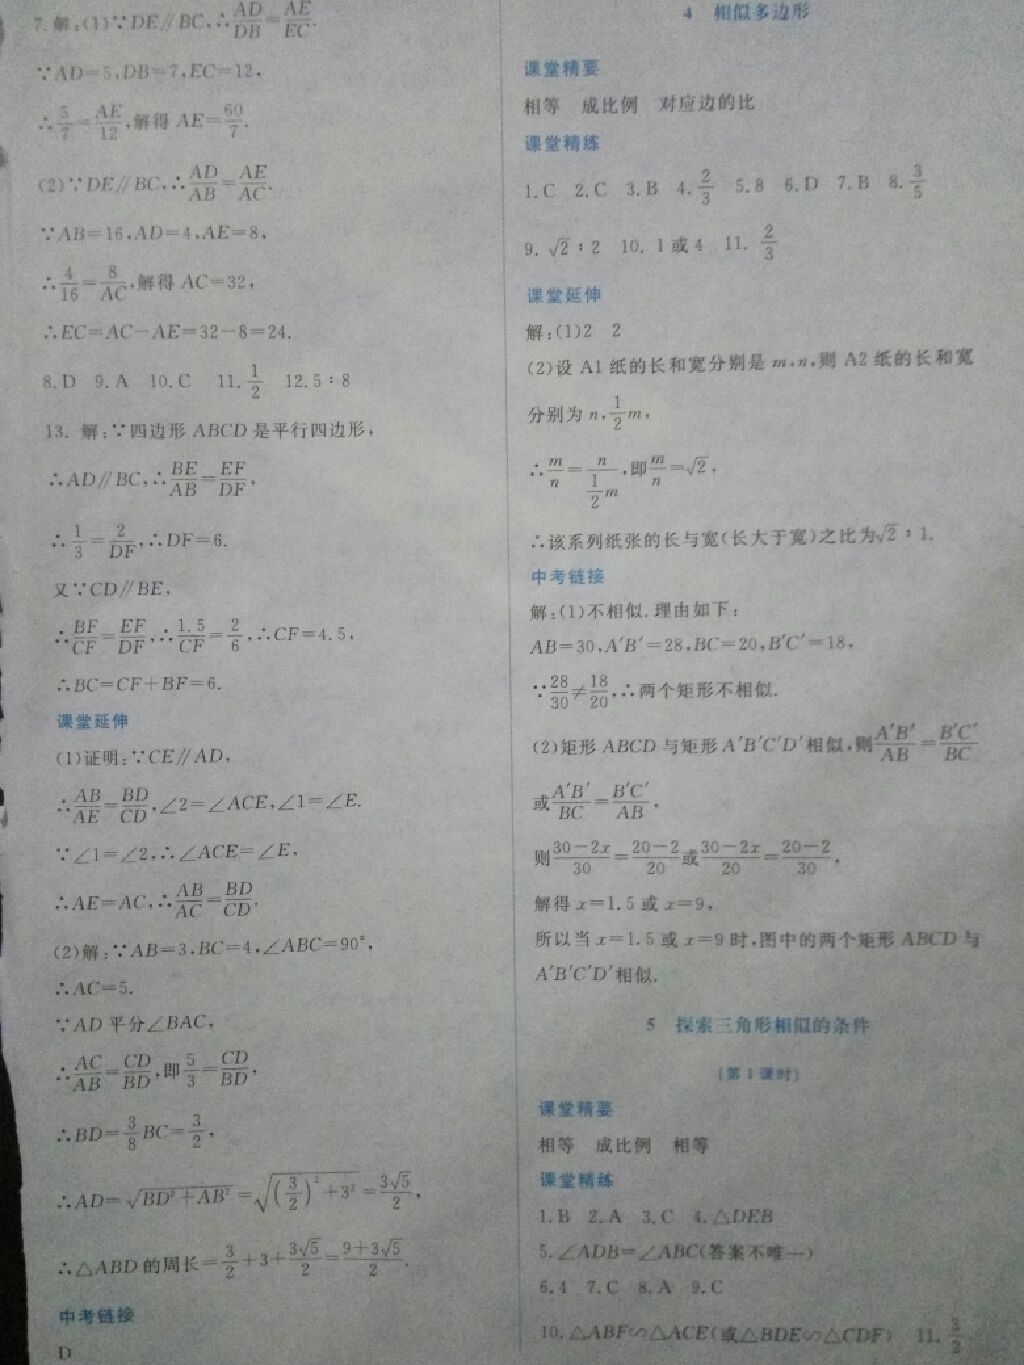 7. 解:(1)∵DE∥BC,∴AD/DB=AE/EC.
∵AD=5,DB=7,EC=12,
∴5/7=AE/12,解得 AE=60/7.
(2)∵DE∥BC,∴AD/AB=AE/AC.
∵AB=16,AD=4,AE=8,
∴4/16=8/AC,解得 AC=32,
∴EC=AC-AE=32-8=24.
8. D 9. A 10. C 11. 1/2 12. 5∶8
13. 解:∵四边形 ABCD 是平行四边形,
∴AD∥BC,∴BE/AB=EF/DF,
∴1/3=2/DF,∴DF=6.
又∵CD∥BE,
∴BF/CF=EF/DF,∴1.5/CF=2/6,∴CF=4.5,
∴BC=CF+BF=6.
课堂延伸
(1)证明:∵CE∥AD,
∴AB/AE=BD/CD,∠2=∠ACE,∠1=∠E.
∵∠1=∠2,∴∠ACE=∠E,
∴AE=AC,∴AB/AC=BD/CD.
(2)解:∵AB=3,BC=4,∠ABC=90°,
∴AC=5.
∵AD 平分∠BAC,
∴AC/AB=CD/BD,即5/3=CD/BD,
∴BD=3/8BC=3/2,
∴AD=√(BD²+AB²)=√((3/2)²+3²)=3√5/2,
∴△ABD 的周长=3/2+3+3√5/2=(9+3√5)/2.
中考链接
D
4 相似多边形
课堂精要
相等 成比例 对应边的比
课堂精练
1. C 2. C 3. B 4. 2/3 5. 8 6. D 7. B 8. 3/5
9. √2∶2 10. 1或4 11. 2/3
课堂延伸
解:(1)2 2
(2)设 A1 纸的长和宽分别是 m,n,则 A2 纸的长和宽
分别为 n,1/2m,
∴m/n=n/(1/2m),即m/n=√2,
∴该系列纸张的长与宽(长大于宽)之比为√2∶1.
中考链接
解:(1)不相似.理由如下:
AB=30,A′B′=28,BC=20,B′C′=18,
∵28/30≠18/20,∴两个矩形不相似.
(2)矩形 ABCD 与矩形 A′B′C′D′相似,则A′B′/AB=B′C′/BC
或A′B′/BC=B′C′/AB.
则(30-2x)/30=(20-2)/20或(30-2x)/20=(20-2)/30,
解得 x=1.5 或 x=9,
所以当 x=1.5 或 x=9 时,图中的两个矩形 ABCD 与
A′B′C′D′相似.
5 探索三角形相似的条件
(第 1 课时)
课堂精要
相等 成比例 相等
课堂精练
1. B 2. A 3. C 4. △DEB
5. ∠ADB=∠ABC(答案不唯一)
6. 4 7. C 8. A 9. C
10. △ABF∽△ACE(或△BDE∽△CDF) 11. 3/2